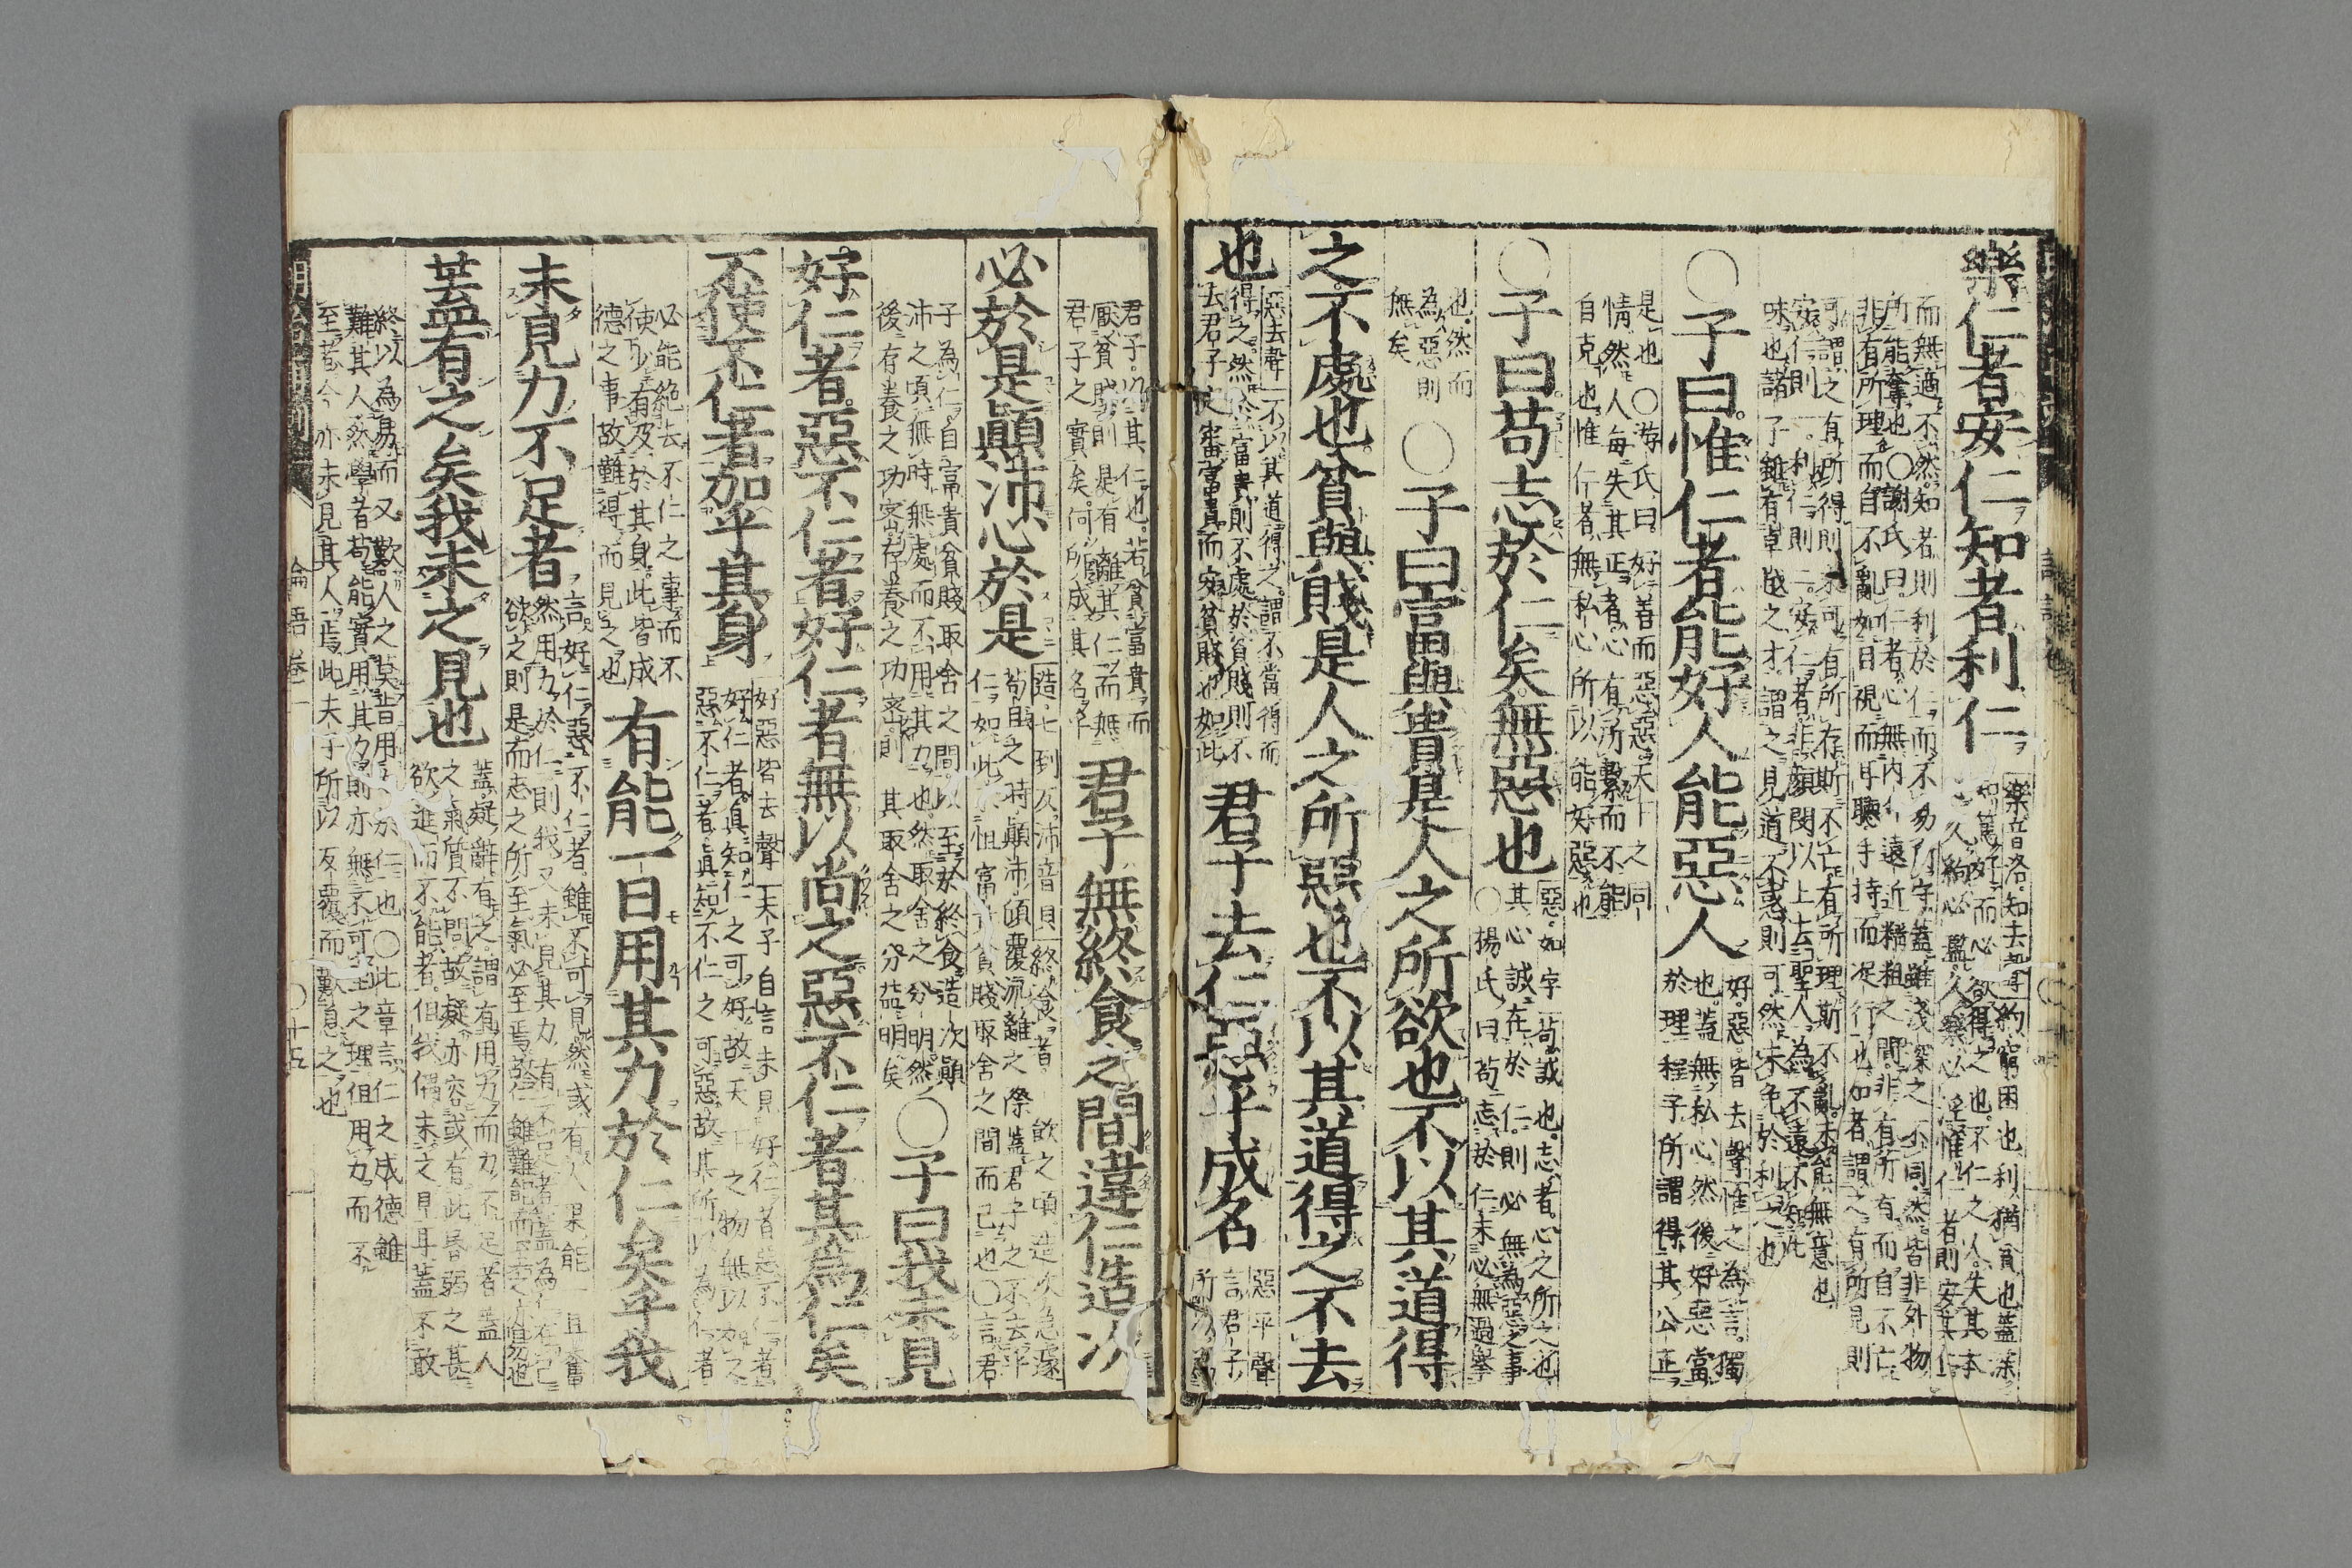 樂仁者安仁知者利仁
樂音洛知去聲約窮困也利猶貪也蓋深
知篤好而必欲得之也不仁之人失其本
心久約必濫久樂必淫惟仁者則安其仁
而無適不然知者則利於仁而不易所守蓋雖淺深之不同然皆非外物
所能奪也○謝氏曰仁者心無内外遠近精粗之間非有所存而自不亡
非有所理而自不亂如目視而耳聽手持而足行也知者謂之有所見則
可謂之有所得則未可有所存斯不亡有所理斯不亂未能無意也
安仁則一利仁則二安仁者非顏閔以上去聖人為不遠不知此
味也諸子雖有卓越之才謂之見道不惑則可然未免於利之也
○子曰惟仁者能好人能惡人
好惡皆去聲惟之為言獨
也蓋無私心然後好惡當
於理程子所謂得其公正
是也○游氏曰好善而惡惡天下之同
情然人每失其正者心有所繫而不能
自克也惟仁者無私心所以能好惡也
○子曰苟志於仁矣無惡也
惡如字苟誠也志者心之所之也
其心誠在於仁則必無為惡之事
○楊氏曰苟志於仁未必無過舉
也然而
為惡則
無矣
○子曰富與貴是人之所欲也不以其道得
之不處也貧與賤是人之所惡也不以其道得之不去
也
惡去聲不以其道得之謂不當得而
得之然於富貴則不處於貧賤則不
去君子之審富貴而安貧賤也如此
君子去仁惡乎成名
惡平聲
言君子
所以為
君子以其仁也若貪富貴而
厭貧賤則是自離其仁而無
君子之實矣何所成其名乎
君子無終食之間違仁造次
必於是顛沛必於是
造七到反沛音貝終食者一飯之頃造次急遽
苟且之時顛沛傾覆流離之際蓋君子之不去乎
仁如此不但富貴貧賤取舍之間而已也○言君
子為仁自富貴貧賤取舍之間以至於終食造次顛
沛之頃無時無處而不用其力也然取舍之分明然
後存養之功密存養之功密則其取舍之分益明矣
○子曰我未見
好仁者惡不仁者好仁者無以尚之惡不仁者其為仁矣
不使不仁者加乎其身
好惡皆去聲夫子自言未見好仁者惡不仁者
好仁者真知仁之可好故天下之物無以加之
惡不仁者真知不仁之可惡故其所以為仁者
必能絶去不仁之事而不
使少有及於其身此皆成
德之事故難得而見之也
有能一日用其力於仁矣乎我
未見力不足者
言好仁惡不仁者雖不可見然或有人果能一旦奮
然用力於仁則我又未見其力有不足者蓋為仁在己
欲之則是而志之所至氣必至焉故仁雖難能而至之亦易也
蓋有之矣我未之見也
蓋疑辭有之謂有用力而力不足者蓋人
之氣質不同故疑亦容或有此昬弱之甚
欲進而不能者但我偶未之見耳蓋不敢
終以為易而又歎人之莫肯用力於仁也○此章言仁之成德雖
難其人然學者苟能實用其力則亦無不可至之理但用力而不
至者今亦未見其人焉此夫子所以反覆而歎息之也
論語卷一
○十五